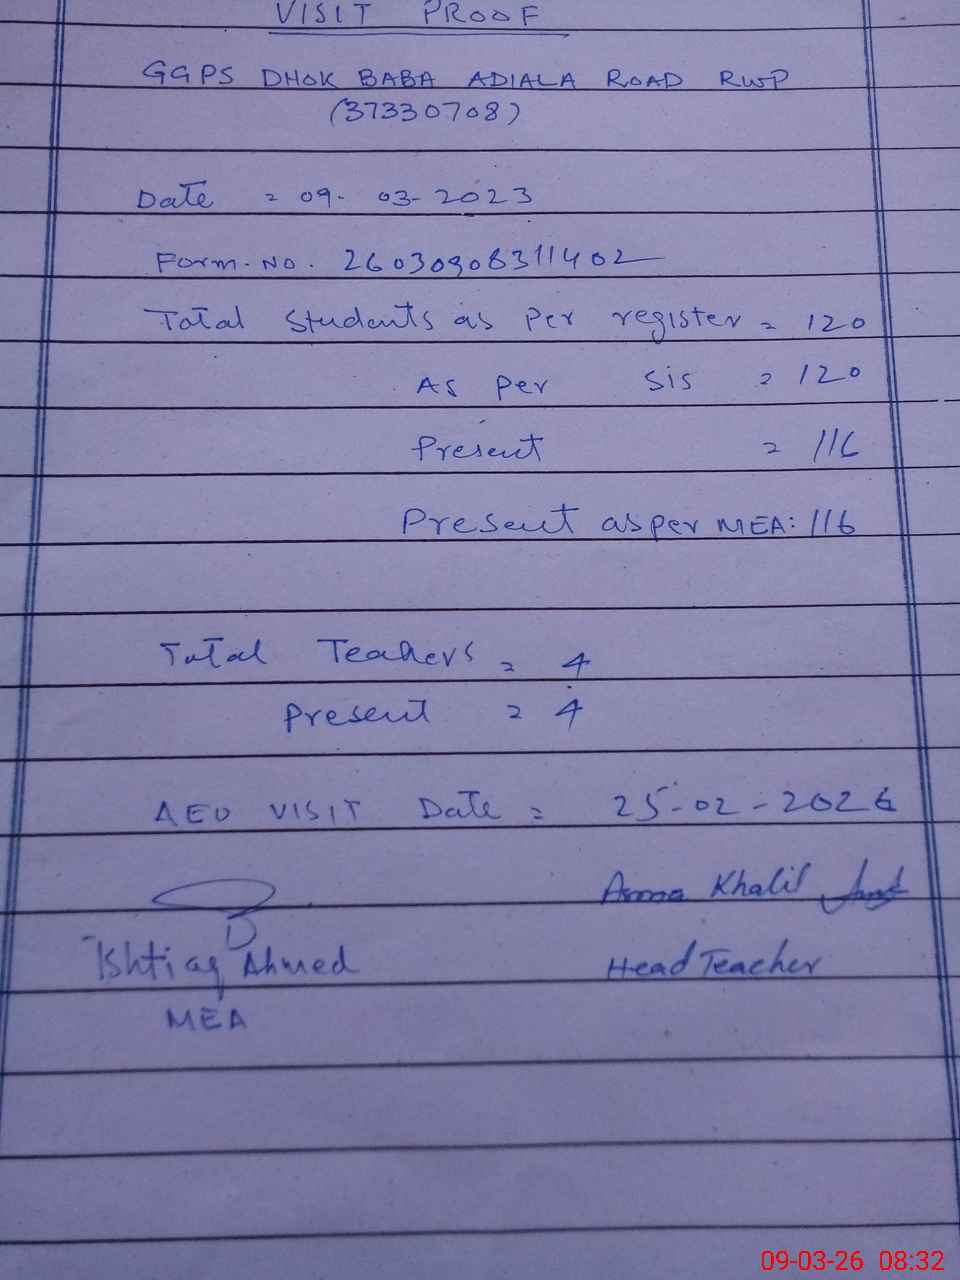 VISIT PROOF
GGPS DHOK BABA ADIALA ROAD RWP
(37330708)
Date = 09-03-2023
Form.No. 26030908311402
Total Students as Per register = 120
As Per SIS = 120
Present = 116
Present as per MEA: 116
Total Teahers = 4
Present = 4
AEO VISIT Date = 25-02-2026
Asma Khalil
Ishtiaq Ahmed Head Teacher
MEA
09-03-26 08:32